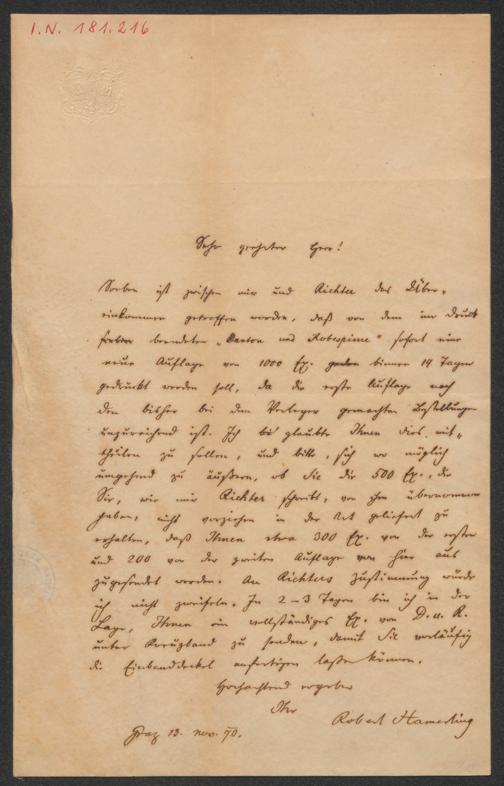 I.N. 181.216
Sehr geehrter Herr!
Soeben ist zwischen mir und Richter das Über-
einkommen getroffen worden, daß von dem im Druck
beendeten „Danton und Robespierre" sofort eine
neue Auflage von 1000 Ex. binnen 14 Tagen
gedruckt werden soll, da die erste Auflage nach
den bisher bei dem Verleger gemachten Bestellungen
unzureichend ist. Ich glaubte Ihnen dies mit-
theilen zu sollen, und bitte, sich wo möglich
umgehend zu äußern, ob Sie die 500 Ex., die
Sie, wie mir Richter schreibt, von ihm übernommen
haben, nicht vorziehen in der Art geliefert zu
erhalten, daß Ihnen etwa 300 Ex. von der ersten
und 200 von der zweiten Auflage von hier aus
zugesendet werden. An Richters Zustimmung würde
ich nicht zweifeln. In 2-3 Tagen bin ich in der
Lage, Ihnen ein vollständiges Ex. von D. u. R.
unter Kreuzband zu senden, damit Sie vorläufig
die Einbanddeckel anfertigen lassen können.
Hochachtend ergeben
Ihr
Robert Hamerling
Graz 13. Nov. 70.